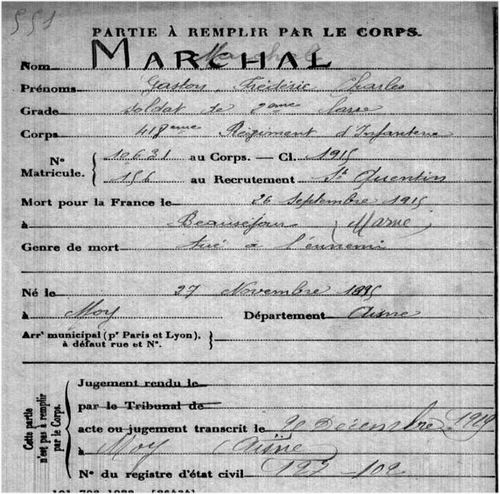 551
PARTIE À REMPLIR PAR LE CORPS.
Nom MARCHAL
Prénoms Gaston, Frédéric Charles
Grade Soldat de 2ème classe
Corps 418ème Régiment d'Infanterie
N° Matricule. { 10631 au Corps. — Cl. 1915
156 au Recrutement St Quentin
Mort pour la France le 26 Septembre 1915
à Beauséjour (Marne)
Genre de mort tué à l'ennemi
Né le 27 Novembre 1895
à Moy Département Aisne
Arrt municipal (pr Paris et Lyon), à défaut rue et N°. }
Cette partie n'est pas à remplir par le Corps.
Jugement rendu le
par le Tribunal de
acte ou jugement transcrit le 20 Décembre 1919
à Moy (Aisne
N° du registre d'état civil 127-102